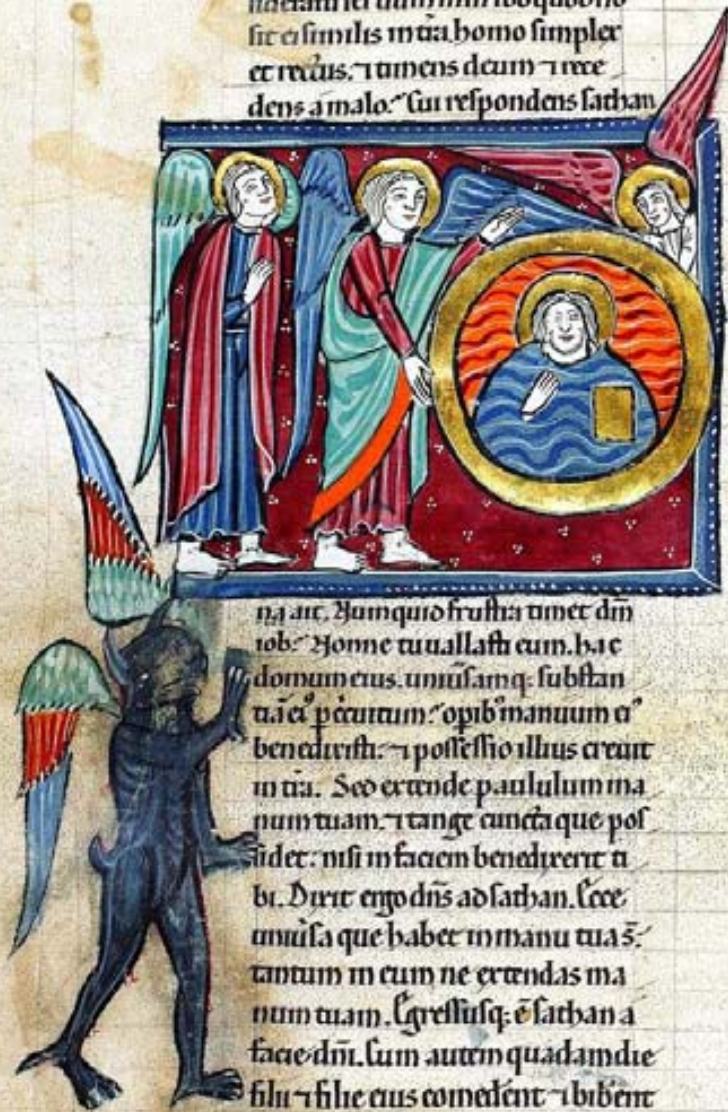 sit ei similis in t̄ra. homo simplex
et rectus. ⁊ timens deum ⁊ rece
dens a malo. Cui respondens sathan
na ait. Nunquid frustra timet dm̄
iob. Nonne tu uallasti eum. hac
domum eius. uniūsamq; substan
tiā ei᷒ p̱ circuitum. opib᷒ manuum ei᷒
benedixisti. ⁊ possessio illius creuit
in t̄ra. Sed extende paululum ma
num tuam. ⁊ tange cuncta que pos
sidet. nisi in faciem benedixerit ti
bi. Dixit ergo dn̄s ad sathan. Ecce
uniūsa que habet in manu tua s̄.
tantum in eum ne extendas ma
num tuam. Egressusq; ē sathan a
facie dn̄i. Cum autem quadam die
filii ⁊ filie eius comedēnt ⁊ bibēnt